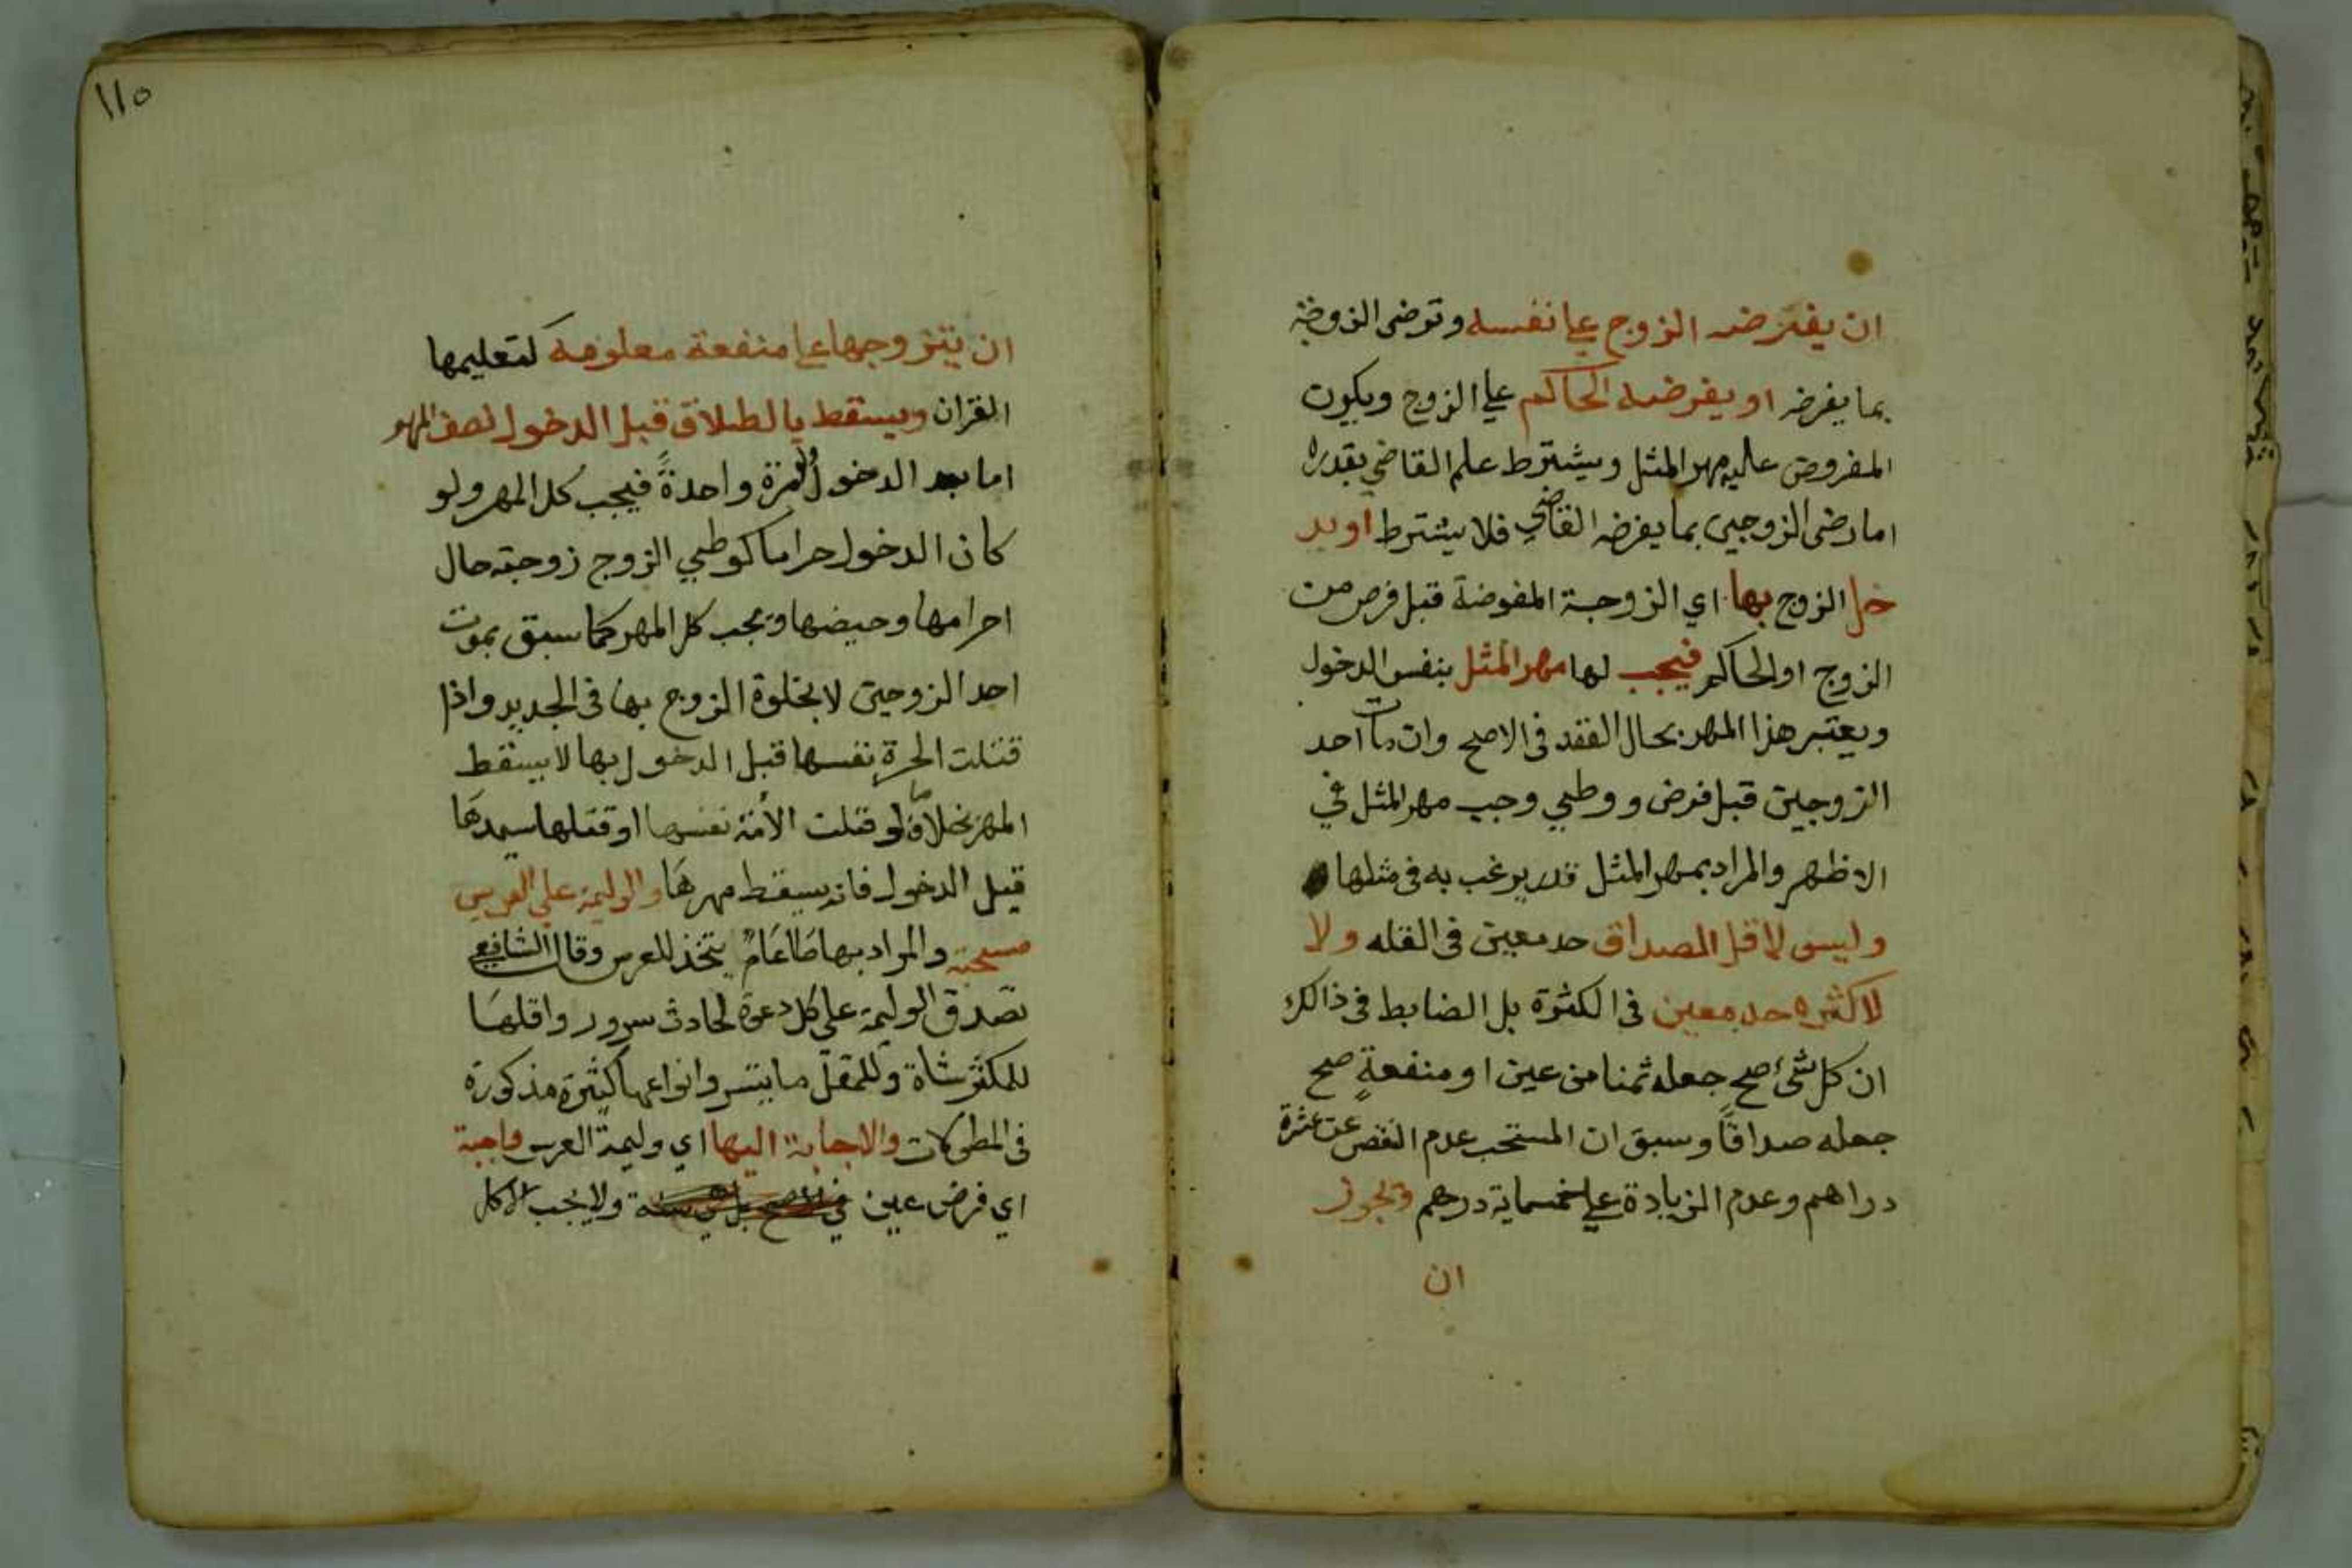 ان يفترضه الزوج علي نفسه وترضى الزوجة
بما يفرضه او يفرضه الحاكم علي الزوج ويكون
المفروض عليه مهر المثل ويشترط علم القاضي بقدره
اما رضى الزوجين بما يفرضه القاضي فلا يشترط او يد
خل الزوج بها اي الزوجة المفوضة قبل فرض من
الزوج او الحاكم فيجب لها مهر المثل بنفس الدخول
ويعتبر هذا المهر بحال العقد في الاصح وان مات احد
الزوجين قبل فرض ووطيي وجب مهر المثل في
الاظهر والمراد بمهر المثل قدر يرغب به في مثلها
وليس لاقل الصداق حد معين في القله ولا
لاكثره حد معين في الكثرة بل الضابط في ذالك
ان كل شئ صح جعله ثمنا من عين او منفعةٍ صح
جعله صداقًا وسبق ان المستحب عدم النقص عن عشرة
دراهم وعدم الزيادة علي خمسماية درهم ويجوز
ان
١١٥
ان يتزوجها علي منفعة معلومه كتعليمها
القران ويسقط بالطلاق قبل الدخول نصف المهر
اما بعد الدخول ولو مرة واحدةً فيجب كل المهر ولو
كان الدخول حراما كوطيي الزوج زوجته حال
احرامها وحيضها ويجب كل المهر كما سبق بموت
احد الزوجين لا بخلوة الزوج بها في الجديد واذا
قتلت الحرة نفسها قبل الدخول بها لا يسقط
المهر بخلاف ما لو قتلت الأمة نفسها او قتلها سيدها
قبل الدخول فانه يسقط مهرها والوليمة علي العرس
مستحبة والمراد بها طاعام يتخذ للعرس وقال الشافعي
تصدق الوليمة علي كل دعوة لحادث سرور واقلها
للمكثر شاة وللمقل ما يتسر وانواعها كثيرة مذكورة
في المطولات والاجابة اليها اي وليمة العرس واجبة
اي فرض عين في الاصح بل هي سنة ولا يجب الاكل